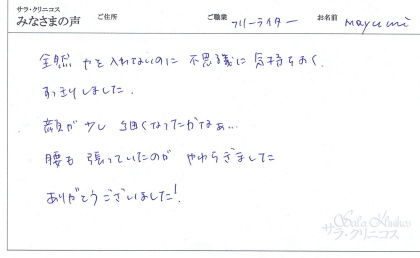 サラ・クリニコス
みなさまの声 ご住所 ご職業 フリーライター お名前 mayumi
全然 力を入れてないのに 不思議に 気持ちよく、
すっきりしました。
顔が少し 細くなったかなぁ…
腰も 張っていたのが やわらぎました
ありがとうございました!
Sala Klinikos
サラ・クリニコス